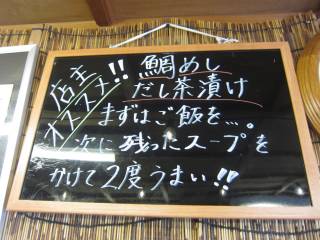 店主
オススメ!!
鯛めし
だし茶漬け
まずはご飯を…。
次に残ったスープを
かけて2度うまい!!